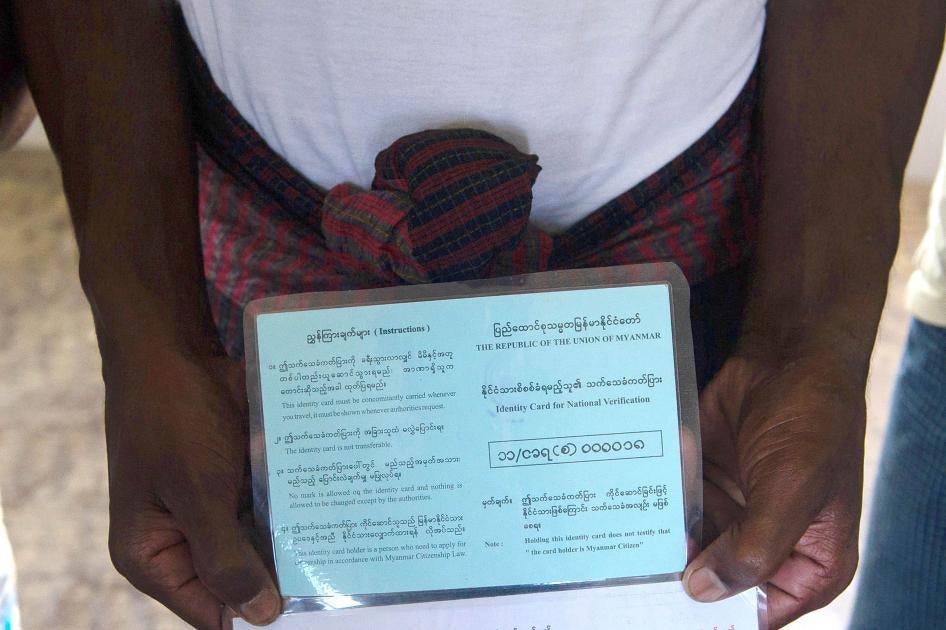 ညွှန်ကြားချက်များ ( Instructions )
၁။ ဤသက်သေခံကတ်ပြားကို ခရီးသွားလာလျှင် မိမိနှင့်အတူ
တစ်ပါတည်းယူဆောင်သွားရမည်၊ အာဏာရှိသူက
တောင်းဆိုသည့်အခါ ထုတ်ပြရမည်။
This identity card must be concomitantly carried whenever
you travel, it must be shown whenever authorities request.
၂။ ဤသက်သေခံကတ်ပြားကို အခြားသူထံ မလွှဲပြောင်းရ။
The identity card is not transferable.
၃။ သက်သေခံကတ်ပြားပေါ်တွင် မည်သည့်အမှတ်အသား၊
မည်သည့် ပြောင်းလဲချက်မျှ မပြုလုပ်ရ။
No mark is allowed on the identity card and nothing is
allowed to be changed except by the authorities.
၄။ ဤသက်သေခံကတ်ပြား ကိုင်ဆောင်သူသည် မြန်မာနိုင်ငံသား
ဥပဒေနှင့်အညီ နိုင်ငံသားလျှောက်ထားရန် လိုအပ်သည်။
This identity card holder is a person who need to apply for
citizenship in accordance with Myanmar Citizenship Law.
ပြည်ထောင်စုသမ္မတမြန်မာနိုင်ငံတော်
THE REPUBLIC OF THE UNION OF MYANMAR
နိုင်ငံသားစိစစ်ခံရမည့်သူ၏ သက်သေခံကတ်ပြား
Identity Card for National Verification
၁၁/ငခရ(စ) ၀၀၀၀၁၈
မှတ်ချက်။ ဤသက်သေခံကတ်ပြား ကိုင်ဆောင်ခြင်းဖြင့်
နိုင်ငံသားဖြစ်ကြောင်း သက်သေခံအလျဉ်း မဖြစ်
စေရ။
Note : Holding this identity card does not testify that
" the card holder is Myanmar Citizen"